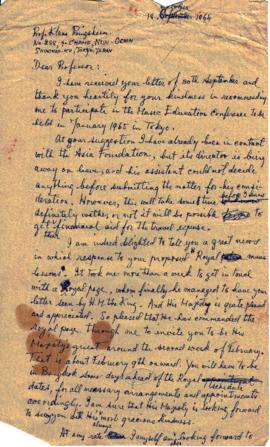 October
14 September 1964
Prof. Klaus Pringsheim
No. 258, 4-Chome, Nishi-Ochiai
Shinjuku-ku, Tokyo, Japan
Dear Professor:
I have received your letter of 20th September and
thank you heartily for your kindness in recommending
me to participate in the Music Education Conference to be
held in January 1965 in Tokyo.
At your suggestion I have already been in contact
with the Asia Foundation, but its director is being
away on leave, and his assistant could not decide
anything before submitting the matter for his consi-
deration. However, this will take some time before I know
definitely wether or not it will be possible to
get financial aid for the travel expense.
I am indeed delighted to tell you a great news
in which response to your proposed "Royal music
lessons". It took me more than a week to get in touch
with a Royal page, whom finally he managed to have your
letter seen by H.M. the King. And His Majesty is quite pleased
and appreciated. So pleased that He has commanded the
Royal page through me to invite you to be His
Majesty's guest around the second week of February.
That is about February 9th onward. You will have to be
in Bangkok some days ahead of the Royal
schedule
dates, for all necessary arrangements and appointments
accordingly. I am sure that His Majesty is looking forward
to seeing you with His most gracious kindness.
always
At any rate I myself am looking forward to